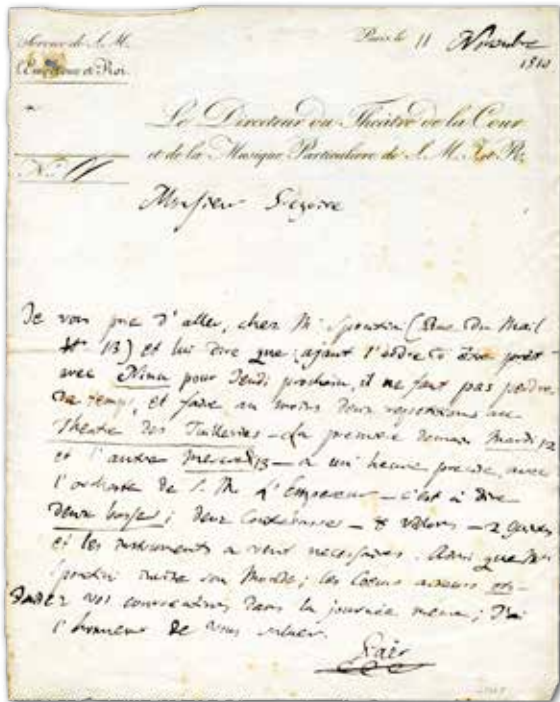 Service de S. M.
l'Empereur et Roi.
Paris le 11 Novembre
1810
Le Directeur du Théâtre de la Cour
et de la Musique Particulière de S. M. I. et R.
N.º
Monsieur Grégoire
Je vous prie d'aller, chez Mr Spontin (Rue du Mail
Nº 13) et lui dire que, ayant l'ordre d'être prêt
avec Nina pour Jeudi prochain, il ne faut pas perdre
de temps, et faire au moins deux répétitions au
Théatre des Tuilleries – La première demain Mardi 12
et l'autre Mercredi 13 – a un' heure précise, avec
l'orchestre de S. M. l'Empereur – c'est à dire
deux ; deux Contrebasse – 8 violons – 2
et les instruments a vent necessaires. Ainsi que Mr
Spontin son Monde; les Coeurs acteurs
vos convocations dans la journée meme; J'ai
l'honneur de vous saluer.
Paër